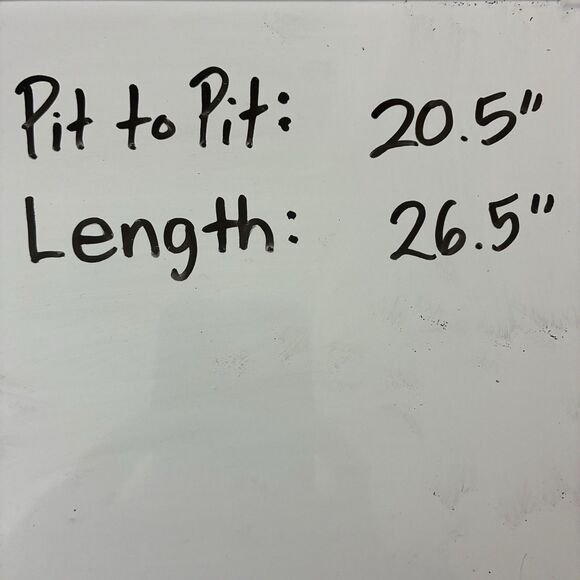 Pit to Pit: 20.5"
Length: 26.5"